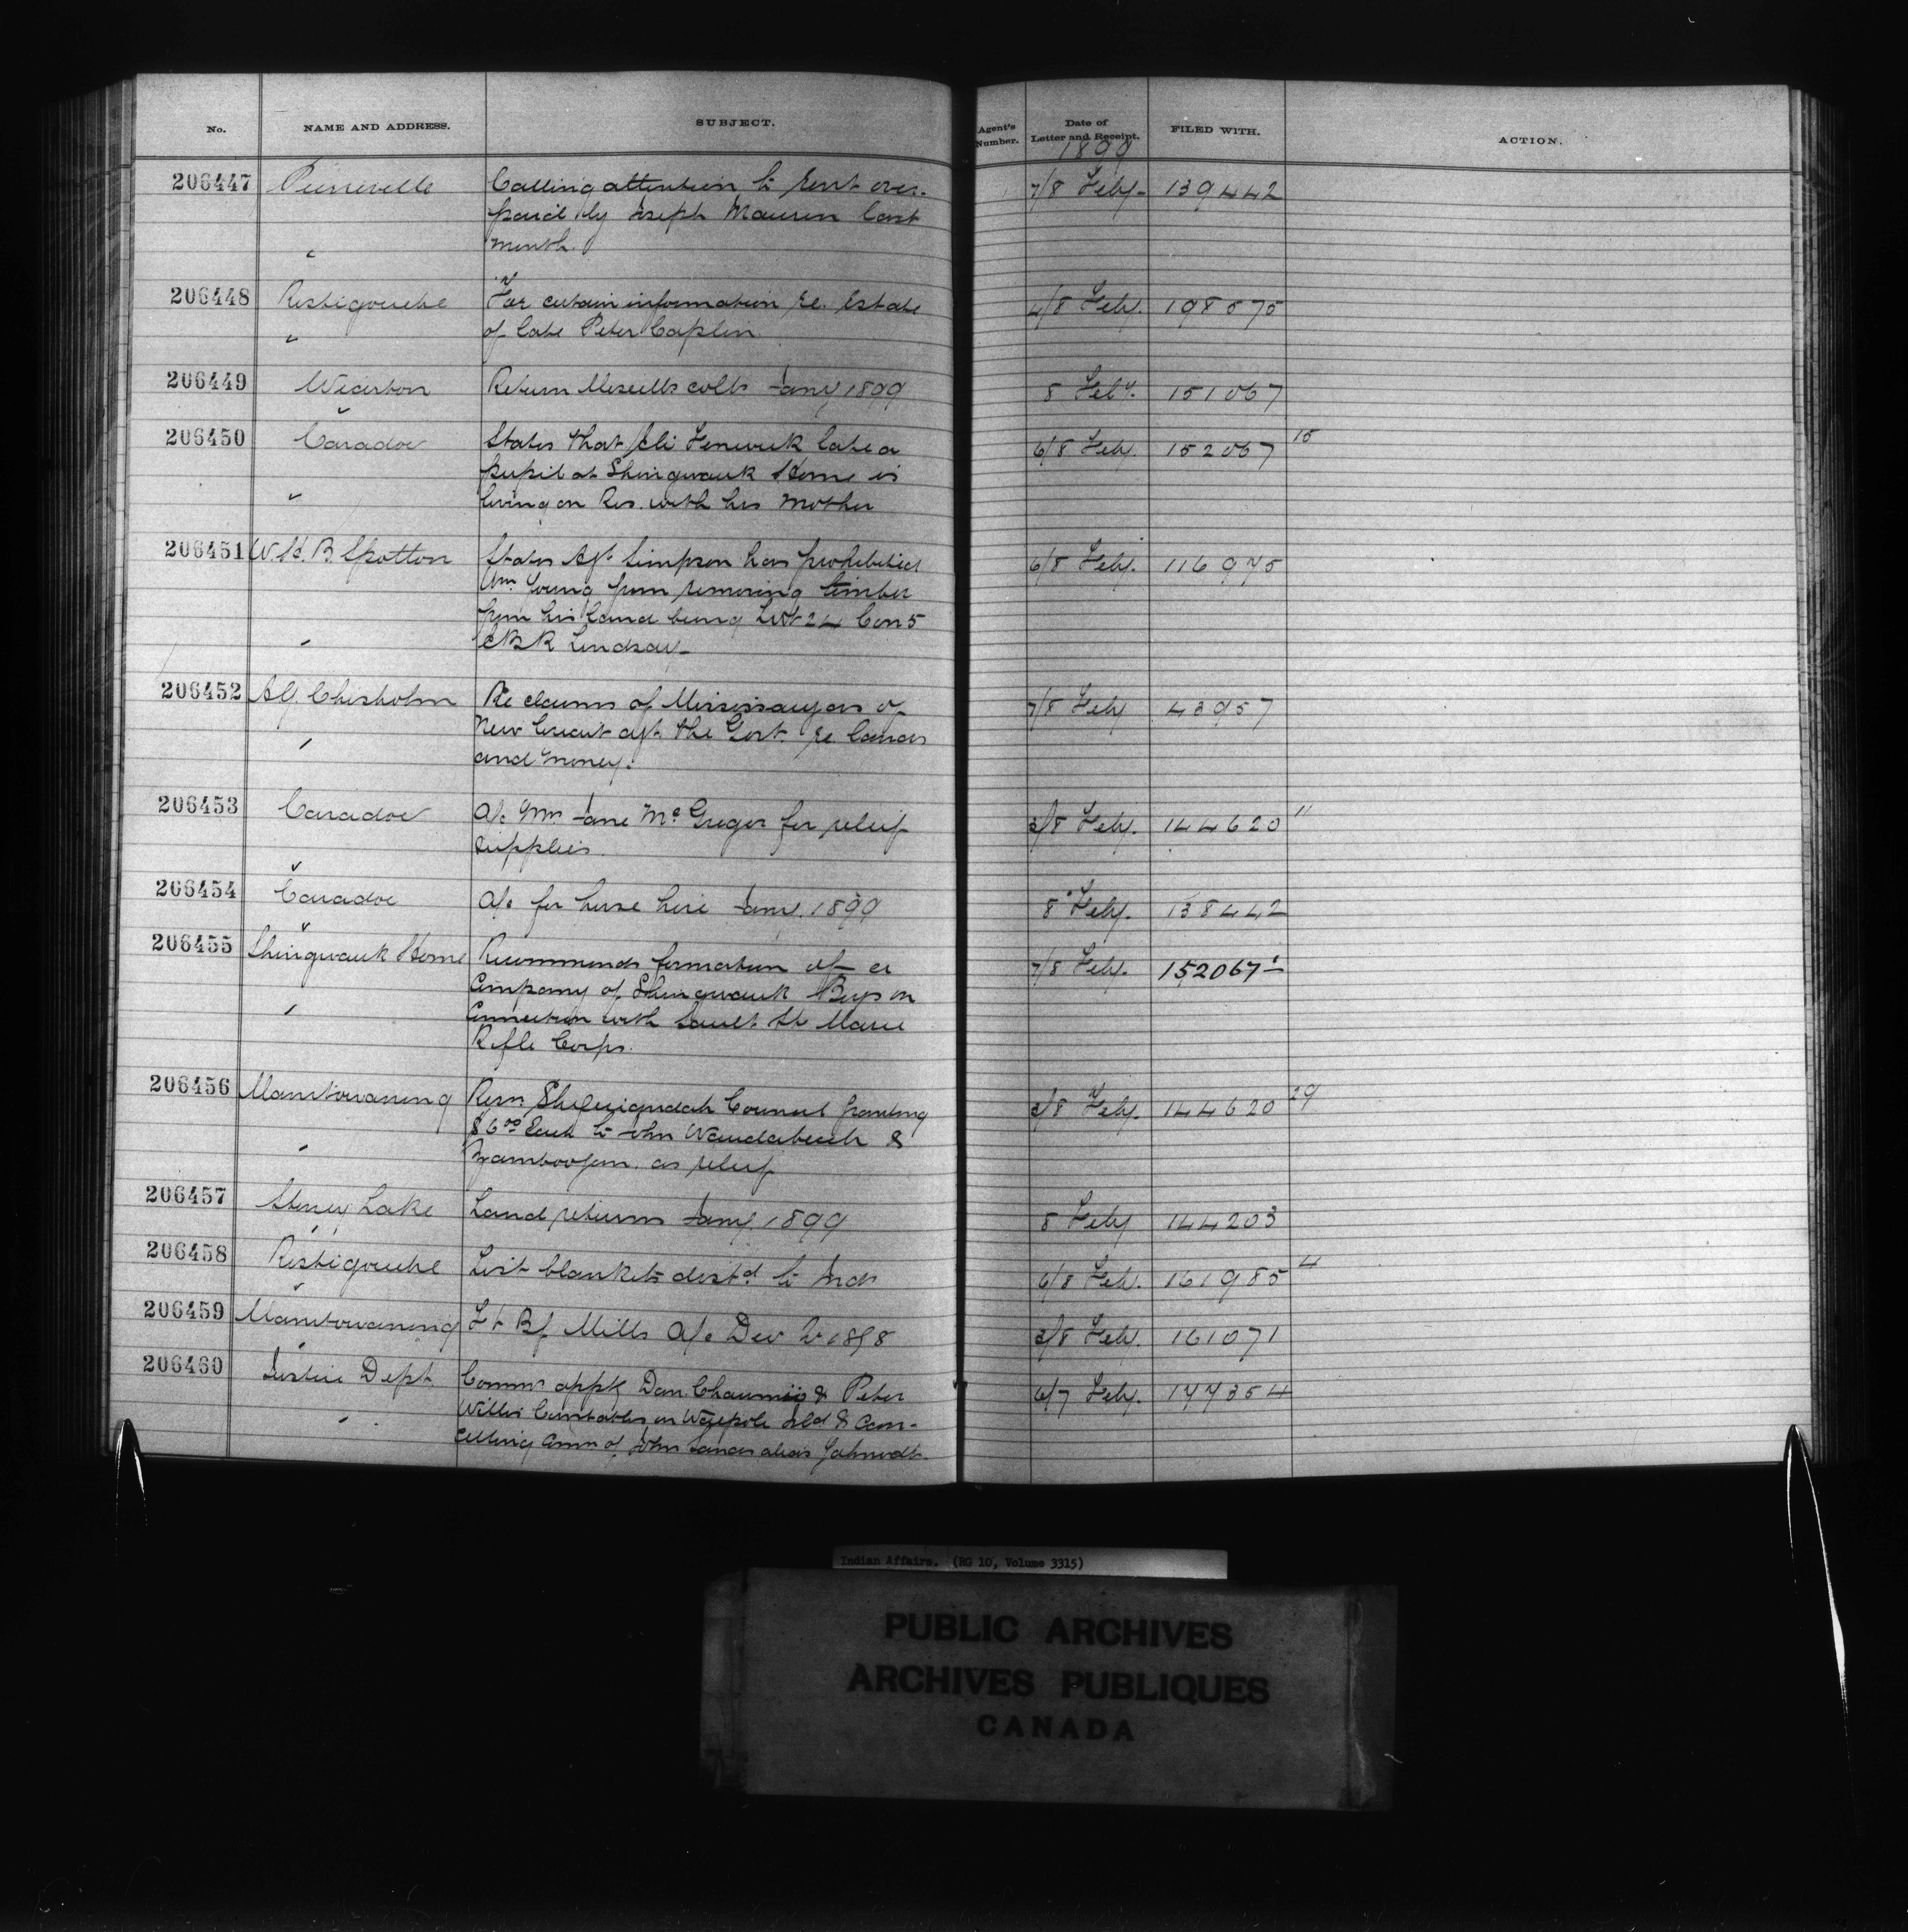 No. NAME AND ADDRESS. SUBJECT. Agent's Number. Date of Letter and Receipt. FILED WITH. ACTION.
1899
206447 Pierreville Calling attention to rent over- 7/8 Feby. 139442
paid by Joseph last
month.
206448 Restigouche For certain information re. Estate 4/8 Feby. 198575
of late Peter Caplin.
206449 Wiarton Return colls Jany 1899 8 Feby. 151067
206450 Caradoc States that Eli Fenwick late a 6/8 Feby. 152067 15
pupil at Shingwauk Home is
living on Res. with his mother
206451 W. H. B. Spotton States Agt. Simpson has prohibited 6/8 Feby. 116975
Wm. Young from removing timber
from his land being Lot 24 Con 5
E B R Lindsay
206452 A G. Chisholm Re claims of Mississaugas of 7/8 Feby 43957
New Credit agt. the Govt. re. lands
and money.
206453 Caradoc A/c Mrs Jane McGregor for relief 3/8 Feby. 144620 11
supplies.
206454 Caradoc A/c for horse hire Jany. 1899 8 Feby. 138442
206455 Shingwauk Home Recommends formation of a 7/8 Feby. 152067 1
Company of Shingwauk Boys in
Connection with Sault Ste Marie
Rifle Corps.
206456 Manitowaning Resn. Sheguiandah Council granting 3/8 Feby. 144620 29
$6.00 Each to John &
as relief
206457 Stoney Lake Land returns Jany. 1899 8 Feby 144203
206458 Restigouche List blankets distd. to Inds 6/8 Feby. 161985 4
206459 Manitowaning Mills A/c Dec 1898 3/8 Feby. 161071
206460 Justice Dept. Comms apptg Dan & Peter 6/7 Feby. 177354
Willis Constables on Walpole Isld & Can-
celling Comm of John alias
Indian Affairs. (RG 10, Volume 3315)
PUBLIC ARCHIVES
ARCHIVES PUBLIQUES
CANADA